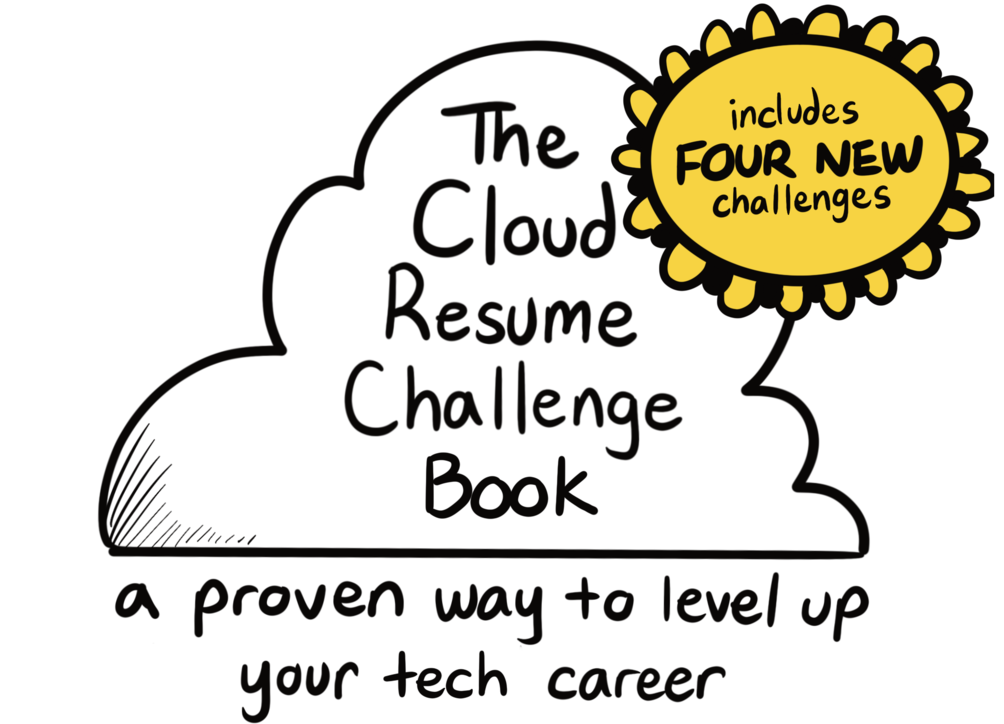 The
Cloud
Resume
Challenge
Book
includes
FOUR NEW
challenges
a proven way to level up
your tech career